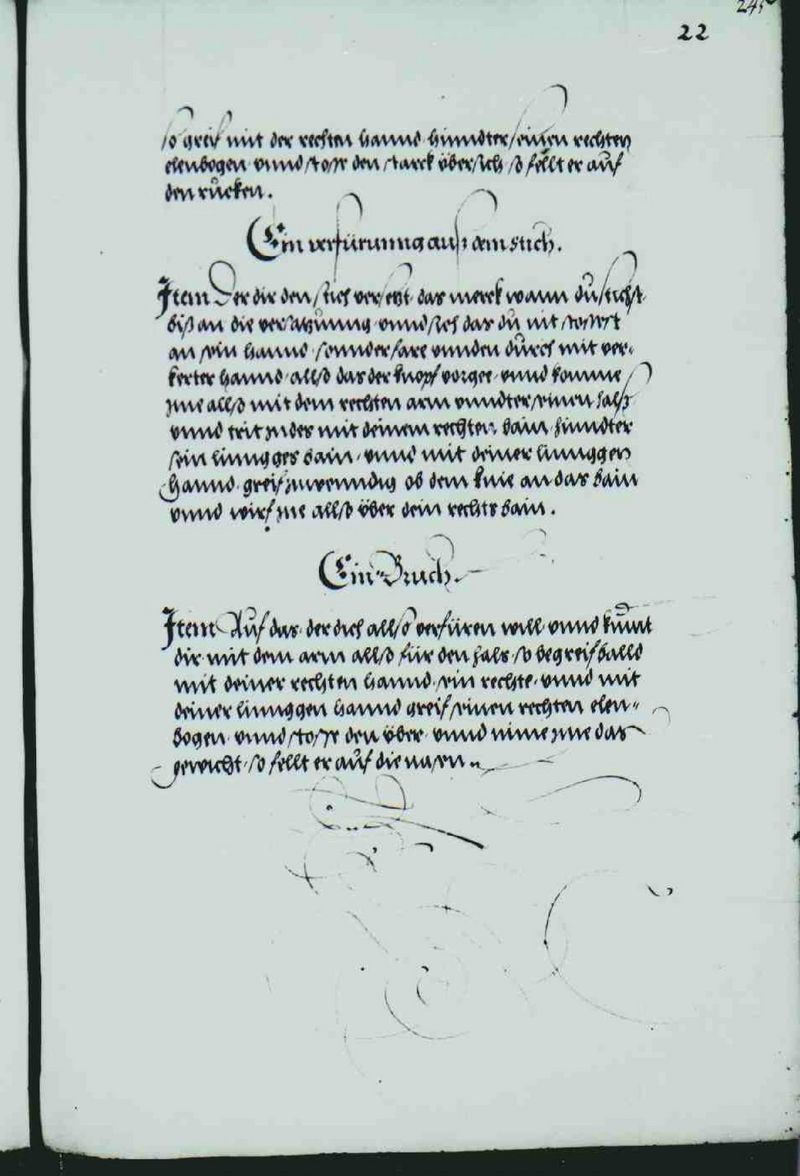 245
22
so greif mit der rechten hannd hinndter seinen rechten
elenbogen vnnd stosse den starck übersich so fellt er auf
den rucken.
Ein verfürunng auss dem stich.
Item Der dir den stich versetzt das merck wann du stichst
biß an die versatzunng vnnd sich das du nit stosest
an sein hannd sonnder fare vnnden durch mit ver-
kerter hannd allso das der knopf vorgee vnnd komme
jme allso mit dem rechten arm vnndter seinen halß
vnnd trit jndes mit deinem rechten bain hinndter
sein linngges bain vnnd mit deiner linnggen
hannd greif jnwenndig ob dem knie an das bain
vnnd wirf jne allso über dein rechts bain.
Ein Bruch.
Item Auf das der dich allso verfüren will vnnd kumt
dir mit dem arm allso für den hals so begreif balld
mit deiner rechten hannd sein rechte vnnd mit
deiner linnggen hannd greif seinen rechten elen-
bogen vnnd stosse den über vnnd nime jme das
gewicht so fellt er auf die nasen